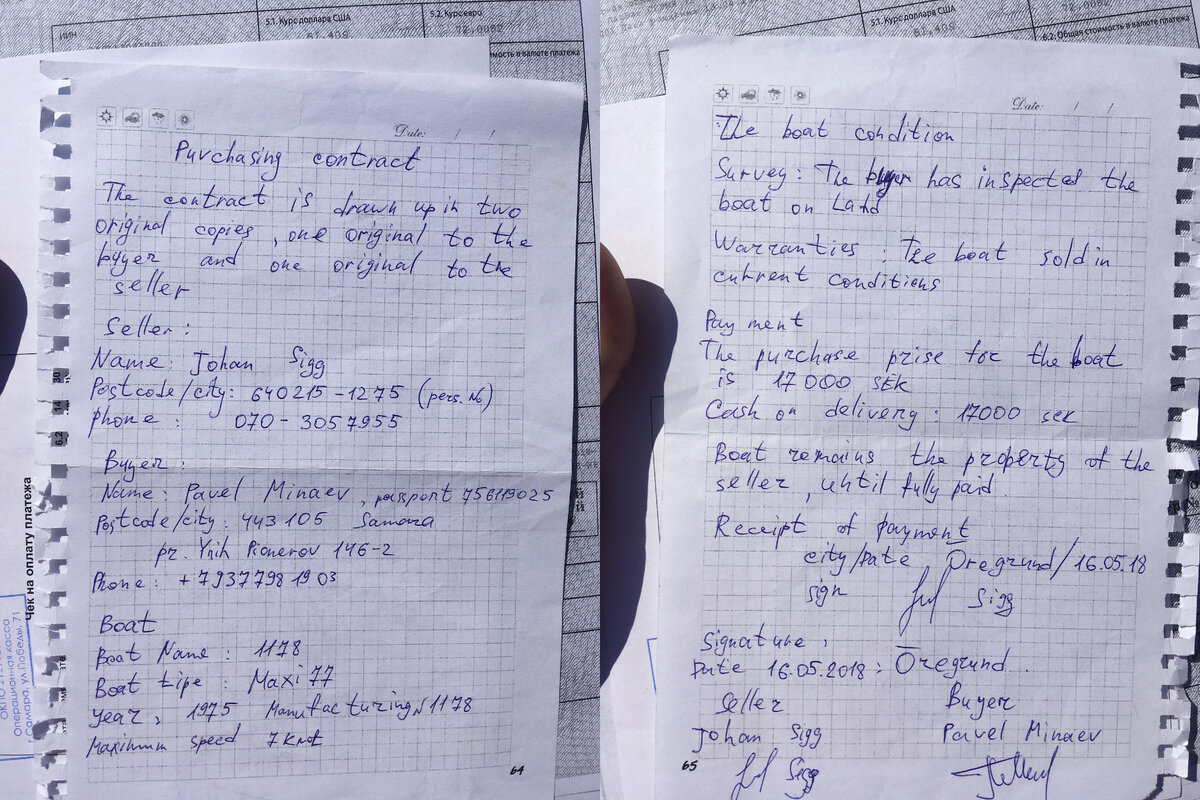 ИИН
5.1. Курс доллара США
61,409
5.2. Курс евро
72,0082
мость в валюте платежа
Date: / /
Purchasing contract
The contract is drawn up in two
original copies, one original to the
byyer and one original to the
seller
Seller:
Name: Johan Sigg
Postcode/city: 640215-1275 (pers. №)
phone: 070-3057955
Byyer:
Name: Pavel Minaev, passport 756119025
Postcode/city: 443105 Samara
pr. Ynih Pionerov 146-2
Phone: +79377981903
Boat
Boat Name: 1178
Boat tipe: Maxi 77
year, 1975 Manufacturing № 1178
Maximum speed 7 knot
64
6.2
Чек на оплату платежа
Операционная касса
г.Самара, ул.Победы, 71
5.1. Курс доллара США
61,409
5.2. Курс евро
72,0082
6.2. Общая стоимость в валюте платежа
Date: / /
The boat condition
Survey: The byyer has inspected the
boat on Land
Warranties: The boat sold in
current conditions
Payment
The purchase prise for the boat
is 17000 SEK
Cash on delivery: 17000 sek
Boat remains the property of the
seller, until fully paid.
Receipt of payment
city/Date Öregrund/16.05.18
sign Sigg
Signature,
Date 16.05.2018: Öregrund.
Seller Buyer
Johan Sigg Pavel Minaev
Sigg
65